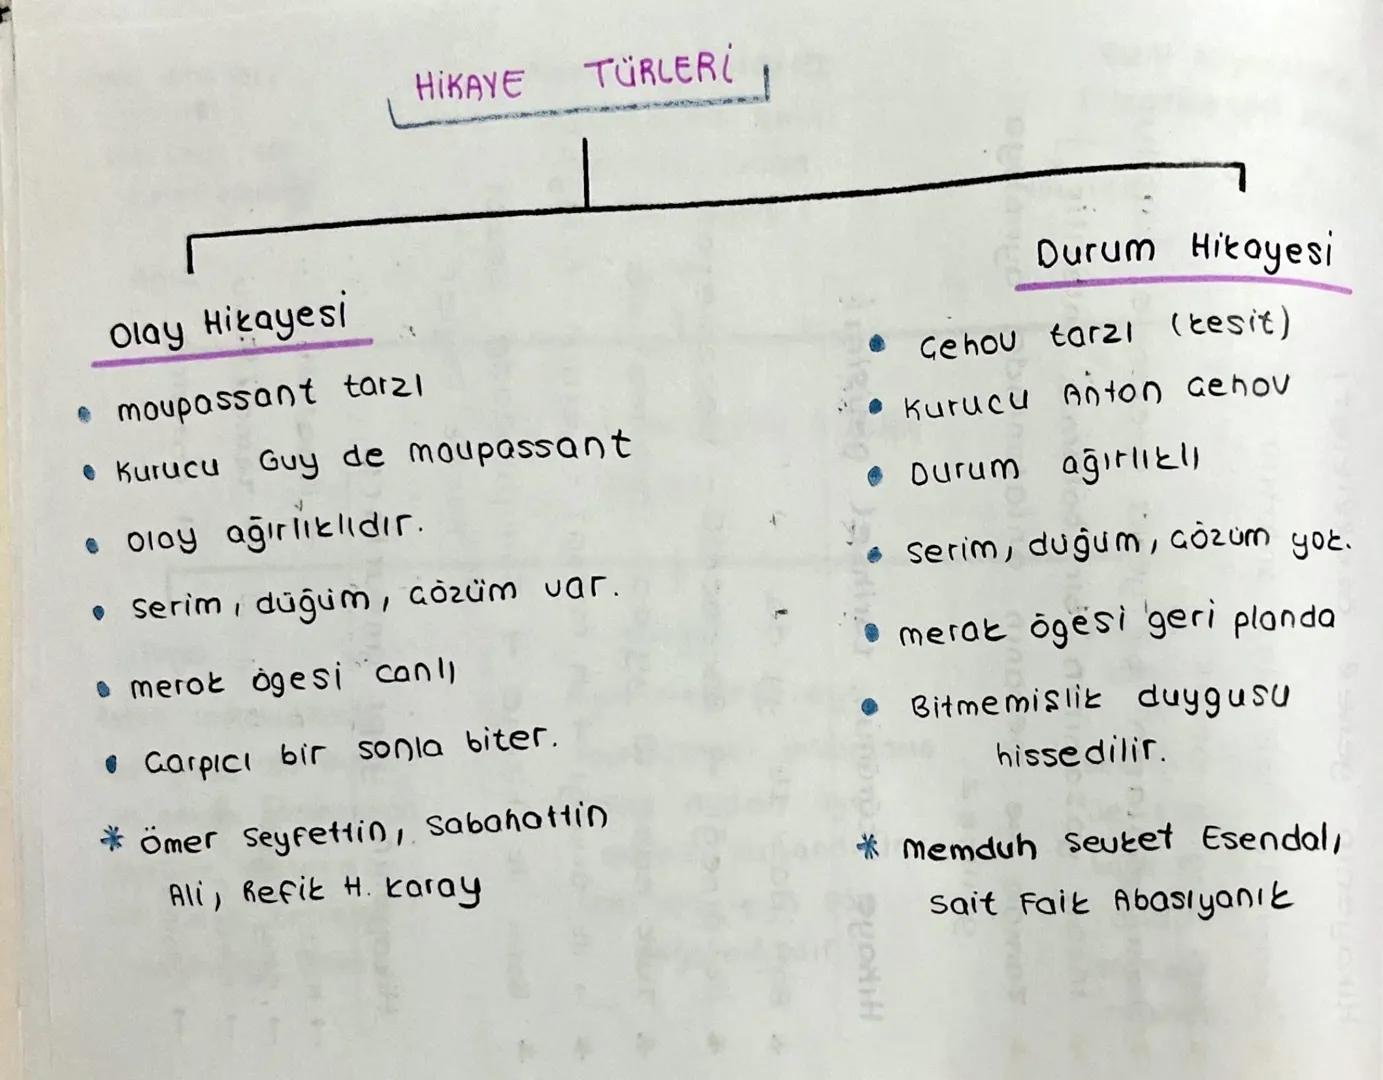 HİKAYE TÜRLERİ
Olay Hikayesi
• moupassant tarzı
• Kurucu Guy de moupassant
• olay ağırlıklıdır.
• serim, düğüm, çözüm var.
• merak ögesi canlı
• Çarpıcı bir sonla biter.
* Ömer Seyfettin, Sabahattin
Ali, Refik H. Karay
Durum Hikayesi
• Çehov tarzı (kesit)
• Kurucu Anton Çehov
• Durum ağırlıklı
• serim, düğüm, çözüm yok.
• merak ögesi geri planda
• Bitmemişlik duygusu
hissedilir.
* Memduh Şevket Esendal,
Sait Faik Abasıyanık